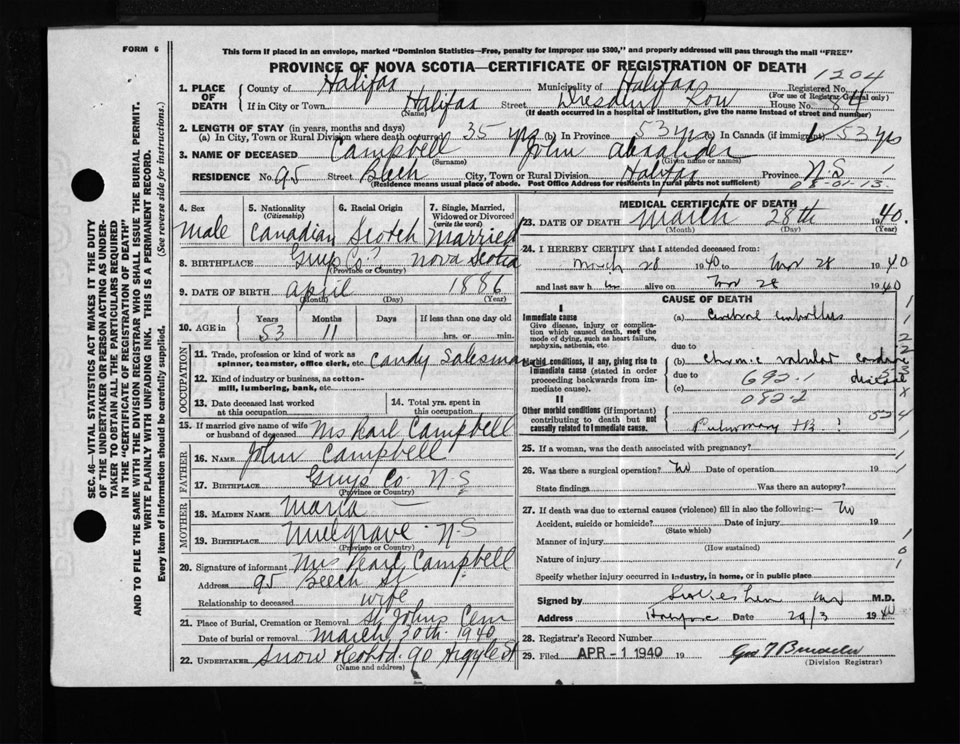 FORM 6
This form if placed in an envelope, marked "Dominion Statistics—Free, penalty for improper use $300," and properly addressed will pass through the mail "FREE"
PROVINCE OF NOVA SCOTIA—CERTIFICATE OF REGISTRATION OF DEATH
1204
1. PLACE OF DEATH County of Halifax Municipality of Halifax Registered No.
(For use of Registrar General only)
If in City or Town Halifax Street Dresden Row House No.
(Name) (If death occurred in a hospital or institution, give its name instead of street and number)
2. LENGTH OF STAY (in years, months and days)
(a) In City, Town or Rural Division where death occurred 35 yrs (b) In Province 53 yrs (c) In Canada (if immigrant) 53 yrs
3. NAME OF DECEASED Campbell John Alexander
(Surname) (Given name or names)
RESIDENCE No. 95 Street Beech City, Town or Rural Division Halifax Province N.S
(Residence means usual place of abode. Post Office Address for residents in rural parts not sufficient)
08-01-13
4. Sex 5. Nationality (Citizenship) 6. Racial Origin 7. Single, Married, Widowed or Divorced (write the word)
Male Canadian Scotch Married
8. BIRTHPLACE Guys Co. Nova Scotia
(Province or Country)
9. DATE OF BIRTH April 1886
(Month) (Day) (Year)
10. AGE in Years Months Days If less than one day
53 11 hrs. or min.
OCCUPATION
11. Trade, profession or kind of work as spinner, teamster, office clerk, etc. Candy Salesman
12. Kind of industry or business, as cotton-mill, lumbering, bank, etc.
13. Date deceased last worked at this occupation 14. Total yrs. spent in this occupation
15. If married give name of wife or husband of deceased Mrs Pearl Campbell
FATHER
16. NAME John Campbell
17. BIRTHPLACE Guys Co. N S
(Province or Country)
MOTHER
18. MAIDEN NAME
19. BIRTHPLACE Mulgrave N-S
(Province or Country)
20. Signature of informant Mrs Pearl Campbell
Address 95 Beech St
Relationship to deceased wife
21. Place of Burial, Cremation or Removal St Johns Cem
Date of burial or removal March 30th 1940
22. UNDERTAKER Snow 90 Argyle St
(Name and address)
MEDICAL CERTIFICATE OF DEATH
23. DATE OF DEATH March 28th 1940.
(Month) (Day) (Year)
24. I HEREBY CERTIFY that I attended deceased from:
March 28 1940 to Mar 28 1940
and last saw h im alive on Mar 28 1940
CAUSE OF DEATH
I
Immediate cause
Give disease, injury or complication which caused death, not the mode of dying, such as heart failure, asphyxia, asthenia, etc.
(a) Cerebral embolus
due to
Morbid conditions, if any, giving rise to immediate cause (stated in order proceeding backwards from immediate cause).
(b) Chronic valvular cardiac disease
due to
(c)
692.1
082.2
II
Other morbid conditions (if important) contributing to death but not causally related to immediate cause.
Pulmonary TB ?
25. If a woman, was the death associated with pregnancy?
26. Was there a surgical operation? No Date of operation 19
State findings Was there an autopsy?
27. If death was due to external causes (violence) fill in also the following:— No
Accident, suicide or homicide? Date of injury 19
(State which)
Manner of injury
(How sustained)
Nature of injury
Specify whether injury occurred in industry, in home, or in public place
Signed by M.D.
Address Halifax Date 29/3 1940
28. Registrar's Record Number
29. Filed APR - 1 1940 19
(Division Registrar)
SEC. 46—VITAL STATISTICS ACT MAKES IT THE DUTY
OF THE UNDERTAKER OR PERSON ACTING AS UNDER-
TAKER TO OBTAIN ALL THE PARTICULARS REQUIRED
IN THE "CERTIFICATE OF REGISTRATION OF DEATH"
AND TO FILE THE SAME WITH THE DIVISION REGISTRAR WHO SHALL ISSUE THE BURIAL PERMIT.
WRITE PLAINLY WITH UNFADING INK. THIS IS A PERMANENT RECORD.
Every item of information should be carefully supplied. (See reverse side for instructions.)